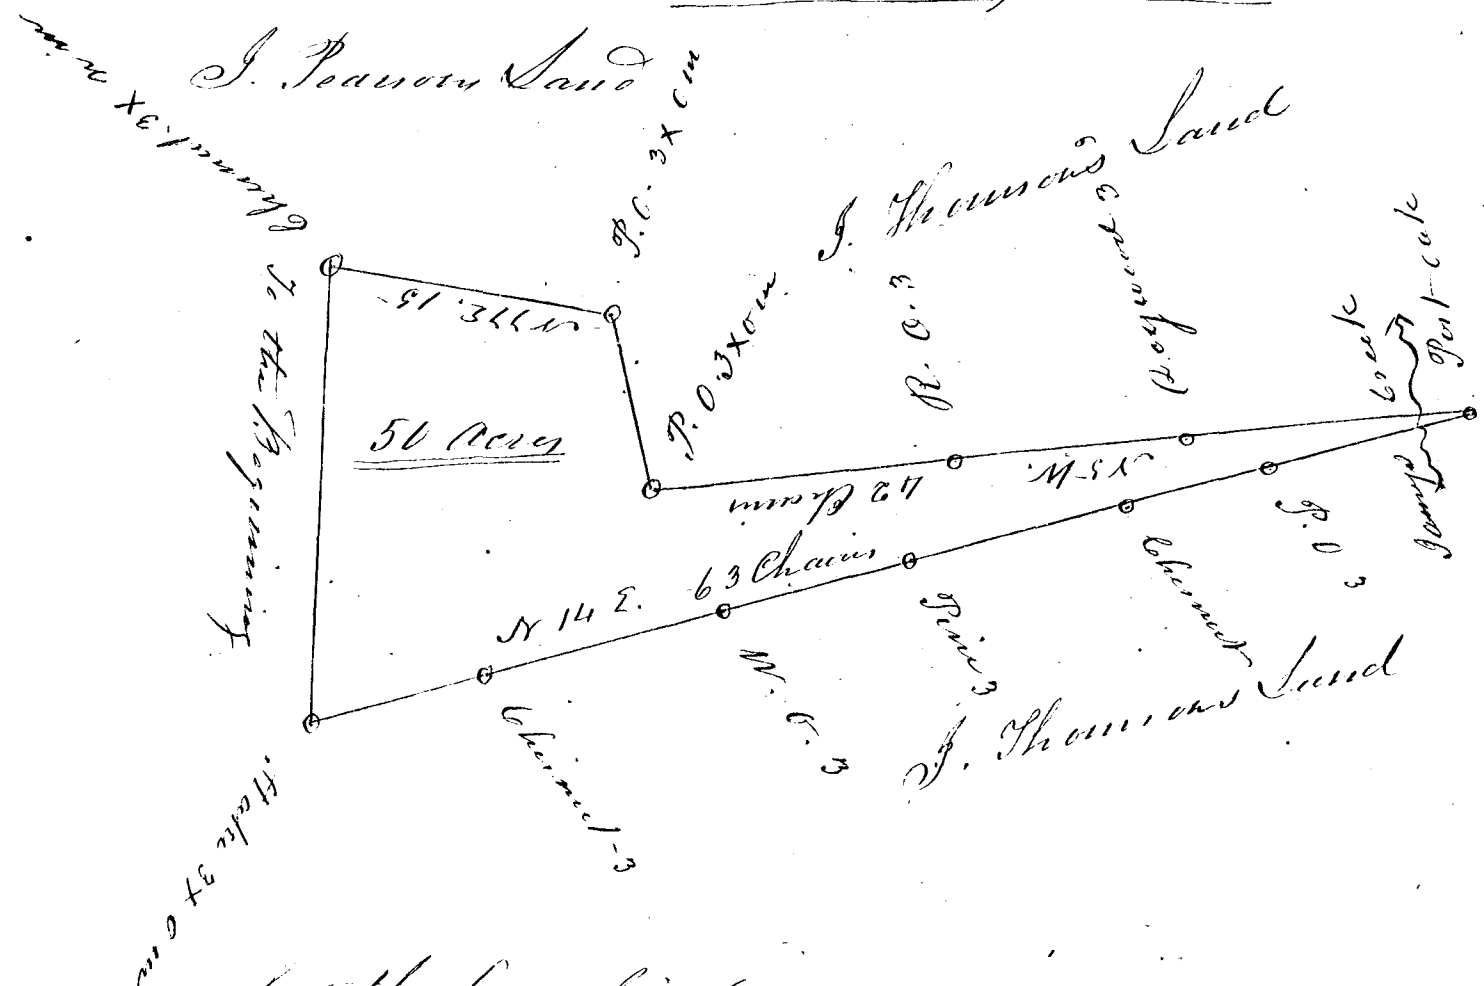 J. Pearsons Land
Chesnut 3X
P. O. 3X om
J. Thomsons Land
To the Beginning
N 77 E. 15
50 Acres
P. O. 3X om
R. O. 3
Dogwood 3
Creek
Post-oak
42 Chains
N 5 W.
N 14 E. 63 Chains
Chesnut-3
W. O. 3
Pine 3
Chesnut
P. O 3
J. Thomsons Land
Stake 3X om